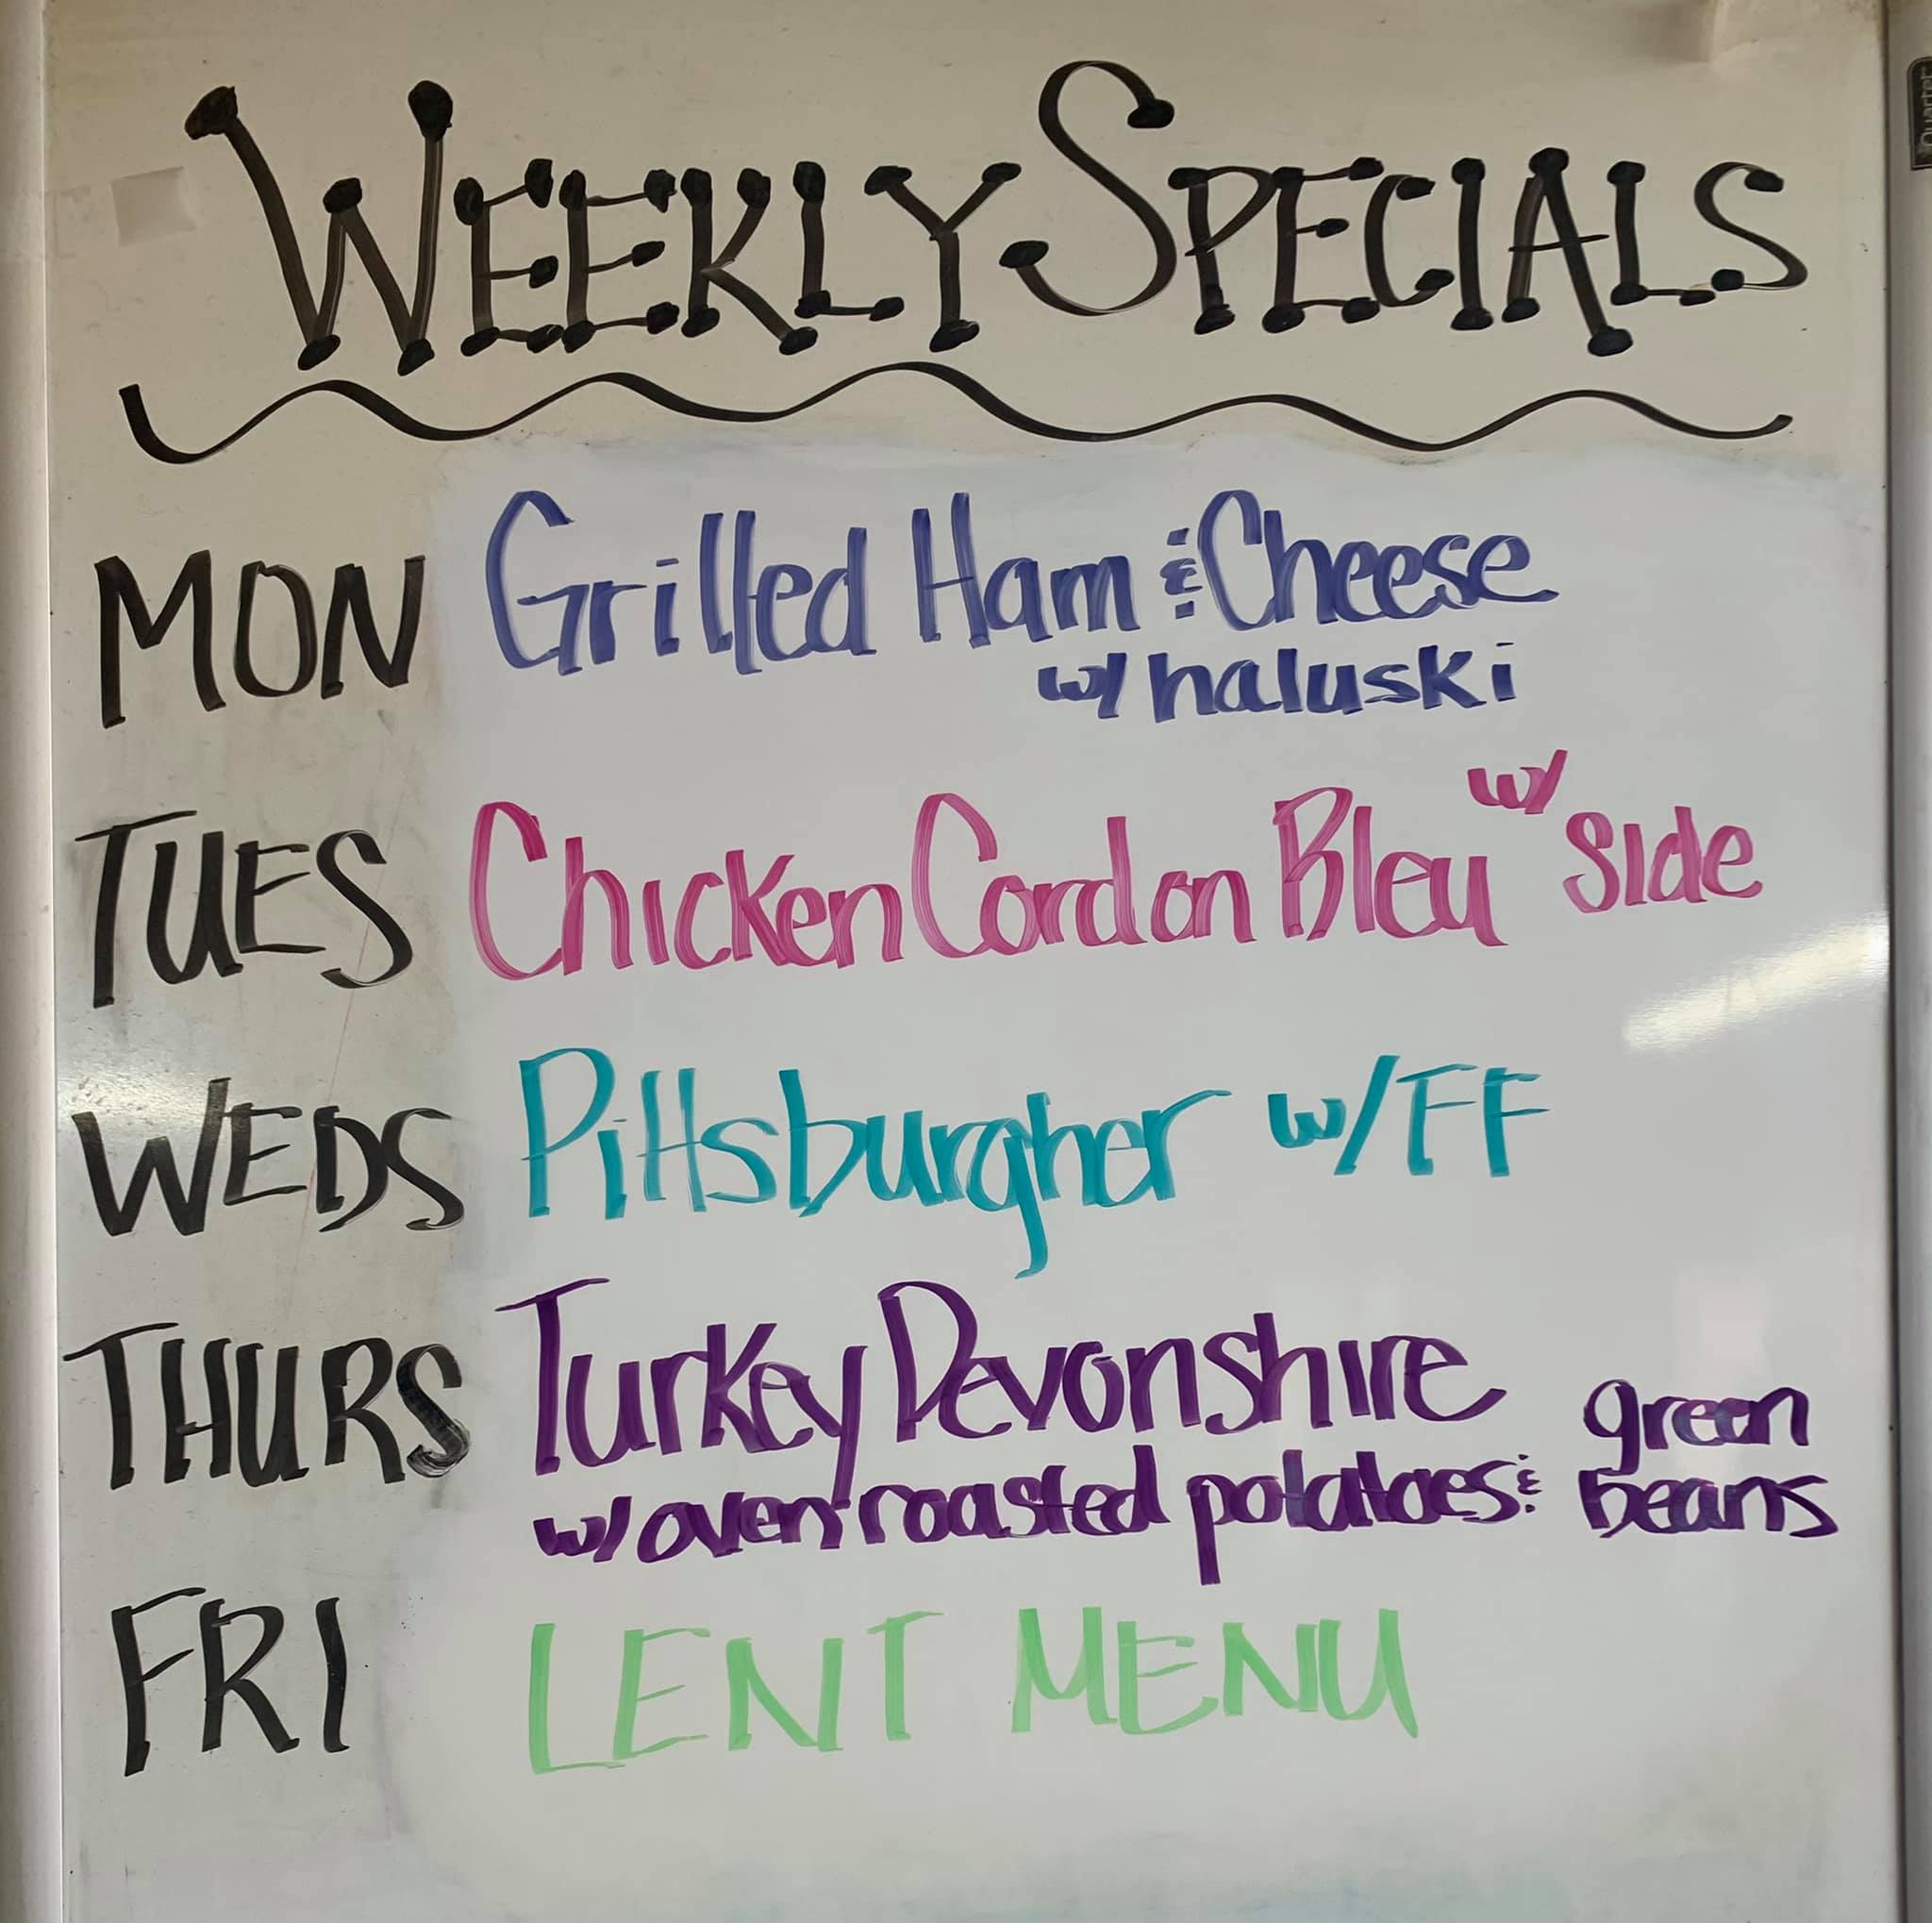 WEEKLY SPECIALS
MON Grilled Ham & Cheese
w/ haluski
TUES Chicken Cordon Bleu w/ Side
WEDS Pittsburgher w/ FF
THURS Turkey Devonshire
w/ oven roasted potatoes & green beans
FRI LENT MENU